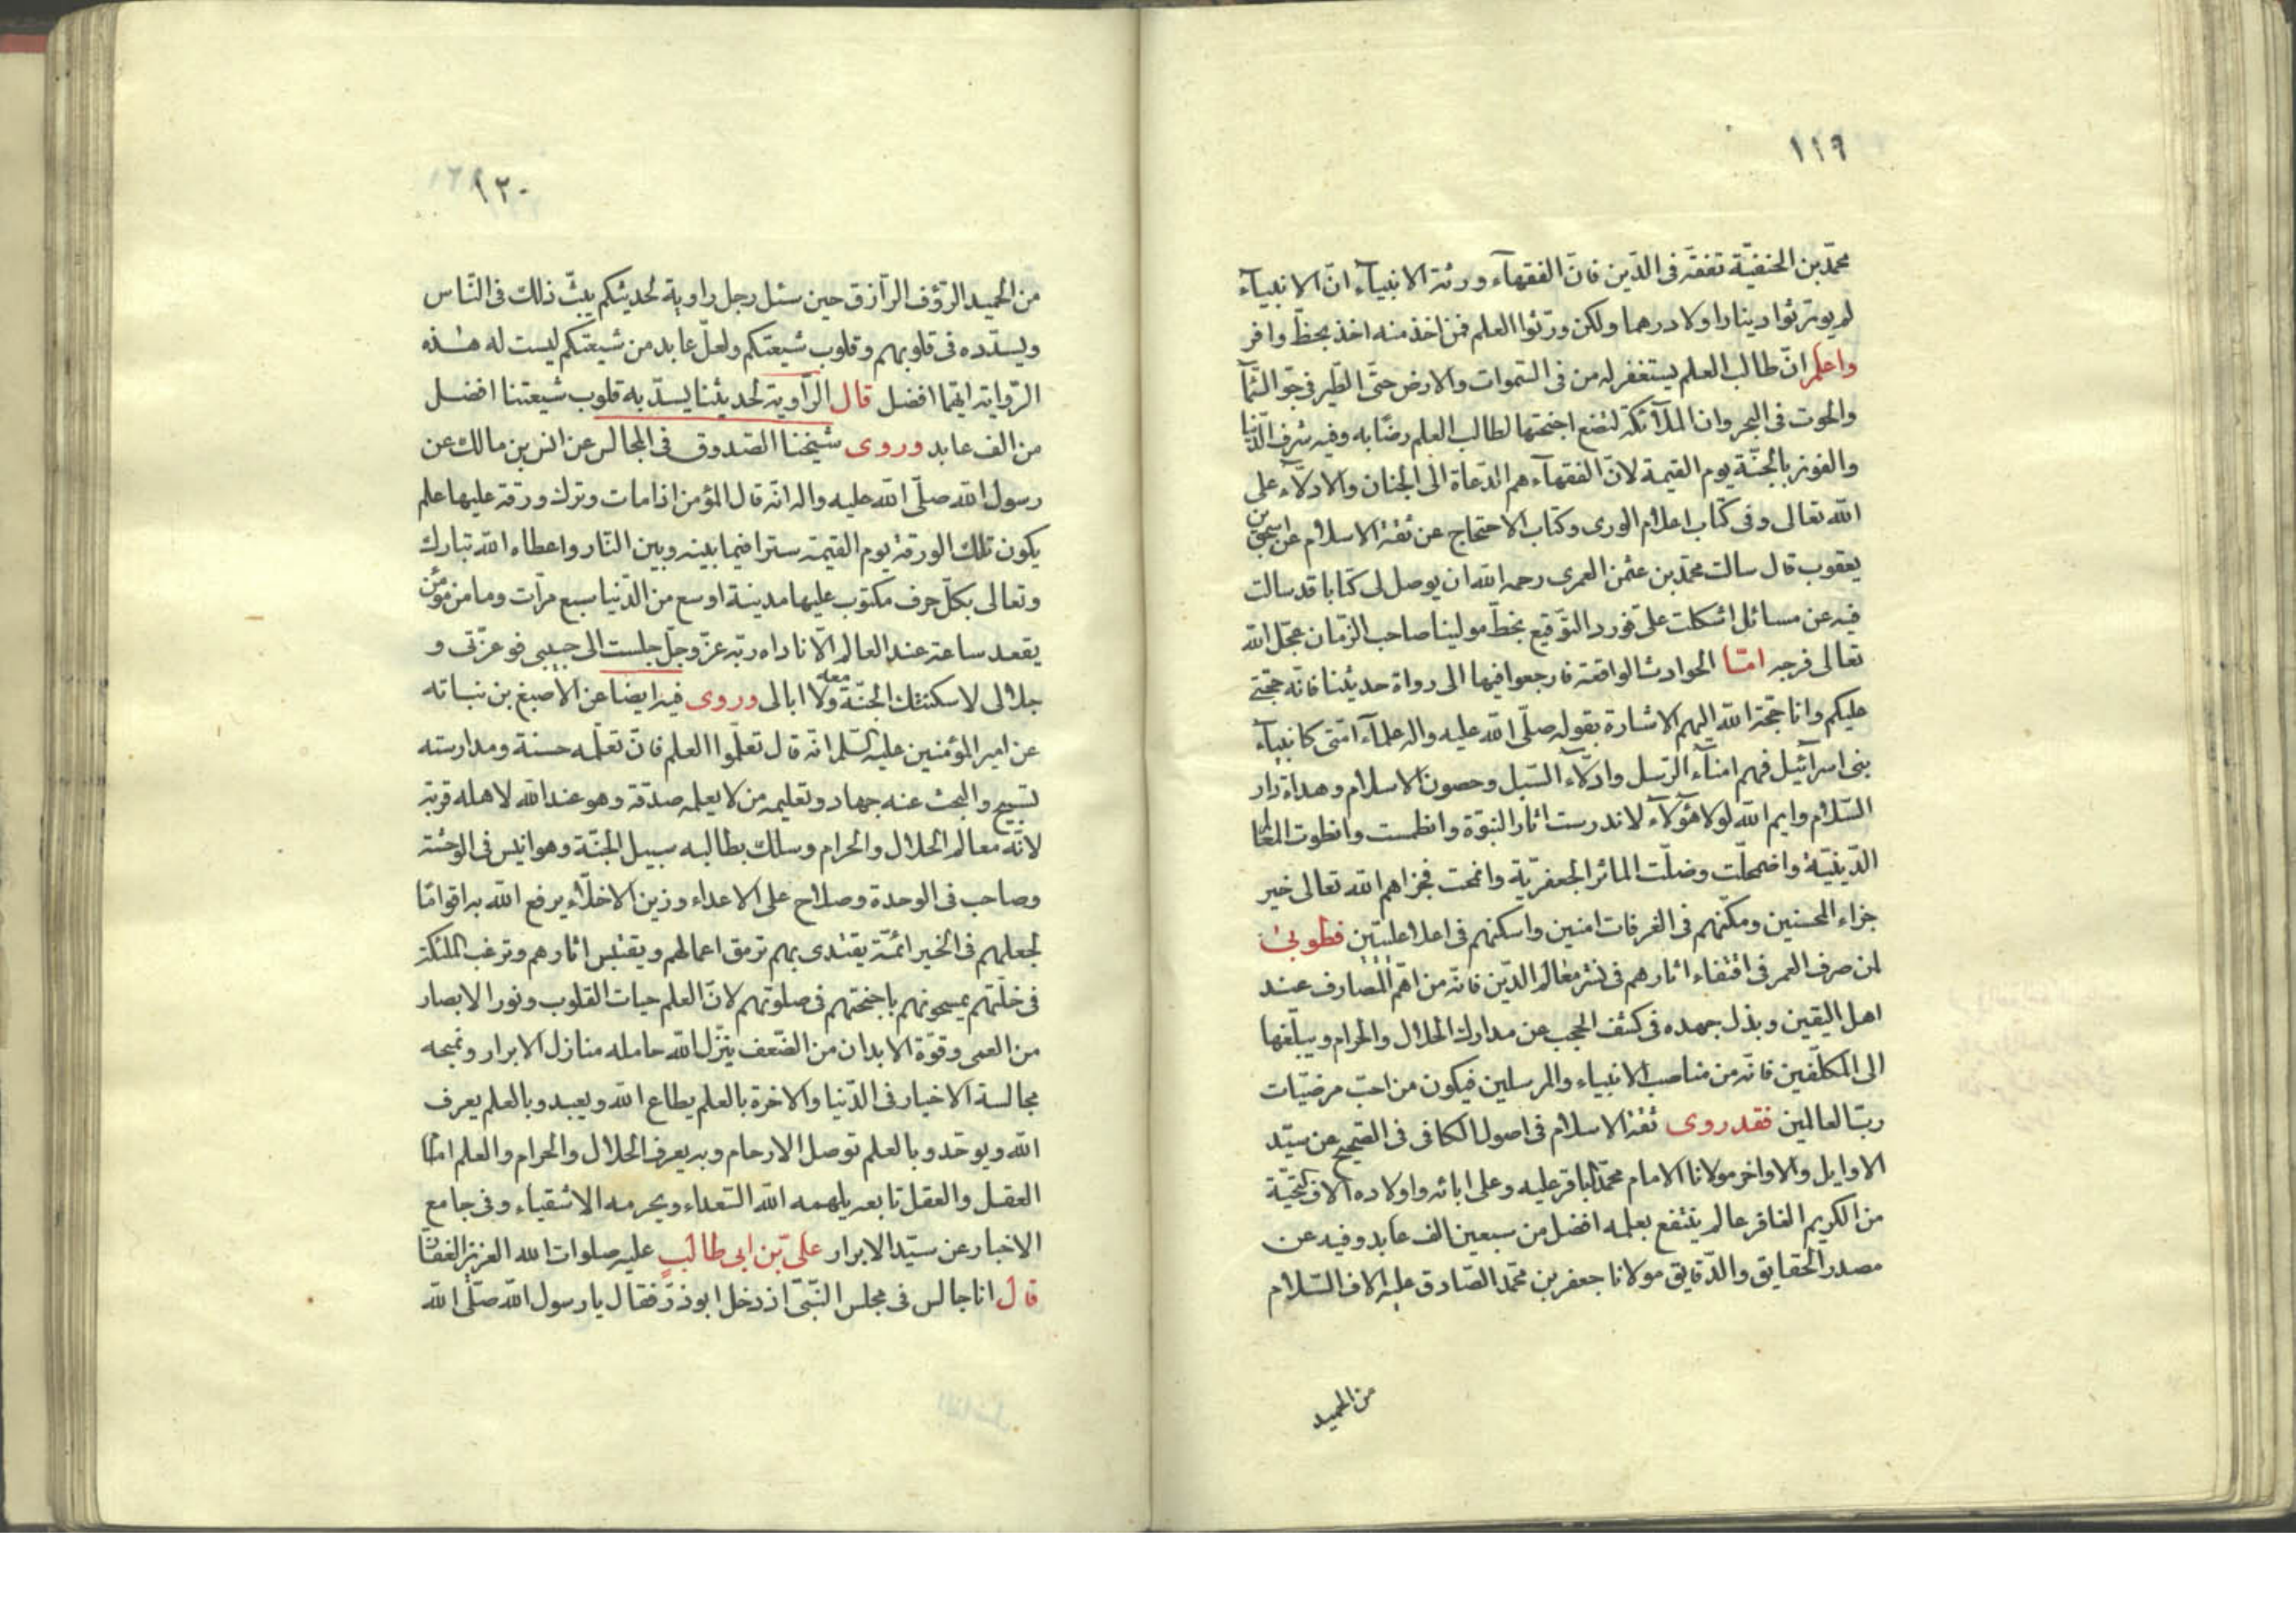 ١١٩
محمّد بن الحنفيّة تفقّه فى الدّين فانّ الفقهآء ورثة الانبيآء انّ الانبيآء
لم يورّثوا دينارا ولا درهما ولكن ورّثوا العلم فمن اخذ منه اخذ بحظّ وافر
واعلم انّ طالب العلم يستغفر له من فى السّموات والارض حتّى الطّير فى جوّ السّمآ
والحوت فى البحر وان الملآئكة لتضع اجنحتها لطالب العلم رضًا به وفيه شرف الدّنيا
والفوز بالجنّة يوم القيمة لانّ الفقهآء هم الدّعاة الى الجنان والادلّآء على
الله تعالى وفى كتاب اعلام الورى وكتاب الاحتجاج عن ثقة الاسلام عن اسحق بن
يعقوب قال سالت محمّد بن عثمن العمرى رحمه الله ان يوصل لى كتابا قد سالت
فيه عن مسائل اشكلت علىّ فورد التّوقيع بخطّ مولينا صاحب الزّمان عجّل الله
تعالى فرجه امّا الحوادث الواقعة فارجعوا فيها الى رواة حديثنا فانّه حجّتى
عليكم وانا حجّة الله اليهم الاشارة بقوله صلّى الله عليه واله علمآء امّتى كانبيآء
بنى اسرآئيل فهم امنآء الرّسل وادلّآء السّبل وحصون الاسلام وهداة دار
السّلام وايم الله لولا هؤلآء لاندرست اثار النبوّة وانطمست وانطوت المعالم
الدّينيّة واضمحلّت وضلّت الماثر الجعفريّة وانمحت فجزاهم الله تعالى خير
جزاء المحسنين ومكّنهم فى الغرفات امنين واسكنهم فى اعلا علّيّين فطوبى
لمن صرف العمر فى اقتفاء اثارهم فى نشر معالم الدّين فانّه من اهمّ المصارف عند
اهل اليقين وبذل جهده فى كشف الحجب عن مدارك الحلال والحرام ويبلّغها
الى المكلّفين فانّه من مناصب الانبياء والمرسلين فيكون من احبّ مرضيّات
ربّ العالمين فقد روى ثقة الاسلام فى اصول الكافى فى الصّحيح عن سيّد
الاوايل والاواخر مولانا الامام محمّد الباقر عليه وعلى ابائه واولاده الاف التّحيّة
من الكريم الغافر عالم ينتفع بعلمه افضل من سبعين الف عابد وفيه عن
مصدر الحقايق والدّقايق مولانا جعفر بن محمّد الصّادق عليه الاف السّلام
من الحميد
١٢٠
من الحميد الرّؤف الرّازق حين سئل رجل راوية لحديثكم يبثّ ذلك فى النّاس
ويسدّده فى قلوبهم وقلوب شيعتكم ولعلّ عابد من شيعتكم ليست له هذه
الرّواية ايّهما افضل قال الرّاوية لحديثنا يسدّ به قلوب شيعتنا افضل
من الف عابد وروى شيخنا الصّدوق فى المجالس عن انس بن مالك عن
رسول الله صلّى الله عليه واله انّه قال المؤمن اذا مات وترك ورقة عليها علم
يكون تلك الورقة يوم القيمة سترا فيما بينه وبين النّار واعطاه الله تبارك
وتعالى بكلّ حرف مكتوب عليها مدينة اوسع من الدّنيا سبع مرّات وما من مؤمن
يقعد ساعة عند العالم الّا ناداه ربّه عزّ وجلّ جلست الى حبيبى فوعزّتى و
جلالى لاسكننّك الجنّة معه ولا ابالى وروى فيه ايضا عن الاصبغ بن نباته
عن امير المؤمنين عليه السّلم انّه قال تعلّموا العلم فانّ تعلّمه حسنة ومدارسته
تسبيح والبحث عنه جهاد وتعليمه من لا يعلمه صدقة وهو عند الله لاهله قربة
لانّه معالم الحلال والحرام وسلك بطالبه سبيل الجنّة وهو انيس فى الوحشة
وصاحب فى الوحدة وصلاح على الاعداء وزين الاخلّاء يرفع الله به اقوامًا
لجعلهم فى الخير ائمّة يقتدى بهم ترمق اعمالهم ويقتبس اثارهم وترغب الملئكة
فى خلّتهم يمسحونهم باجنحتهم فى صلوتهم لانّ العلم حيات القلوب ونور الابصار
من العمى وقوّة الابدان من الضّعف ينزّل الله حامله منازل الابرار ويمنحه
مجالسة الاخيار فى الدّنيا والاخرة بالعلم يطاع الله ويعبد وبالعلم يعرف
الله ويوحّد وبالعلم توصل الارحام وبه يعرف الحلال والحرام والعلم امام
العقل والعقل تابعه يلهمه الله السّعداء ويحرمه الاشقياء وفى جامع
الاخبار عن سيّد الابرار على بن ابى طالب عليه صلوات الله العزيز الغفّار
قال انا جالس فى مجلس النّبىّ اذ دخل ابو ذرّ فقال يا رسول الله صلّى الله